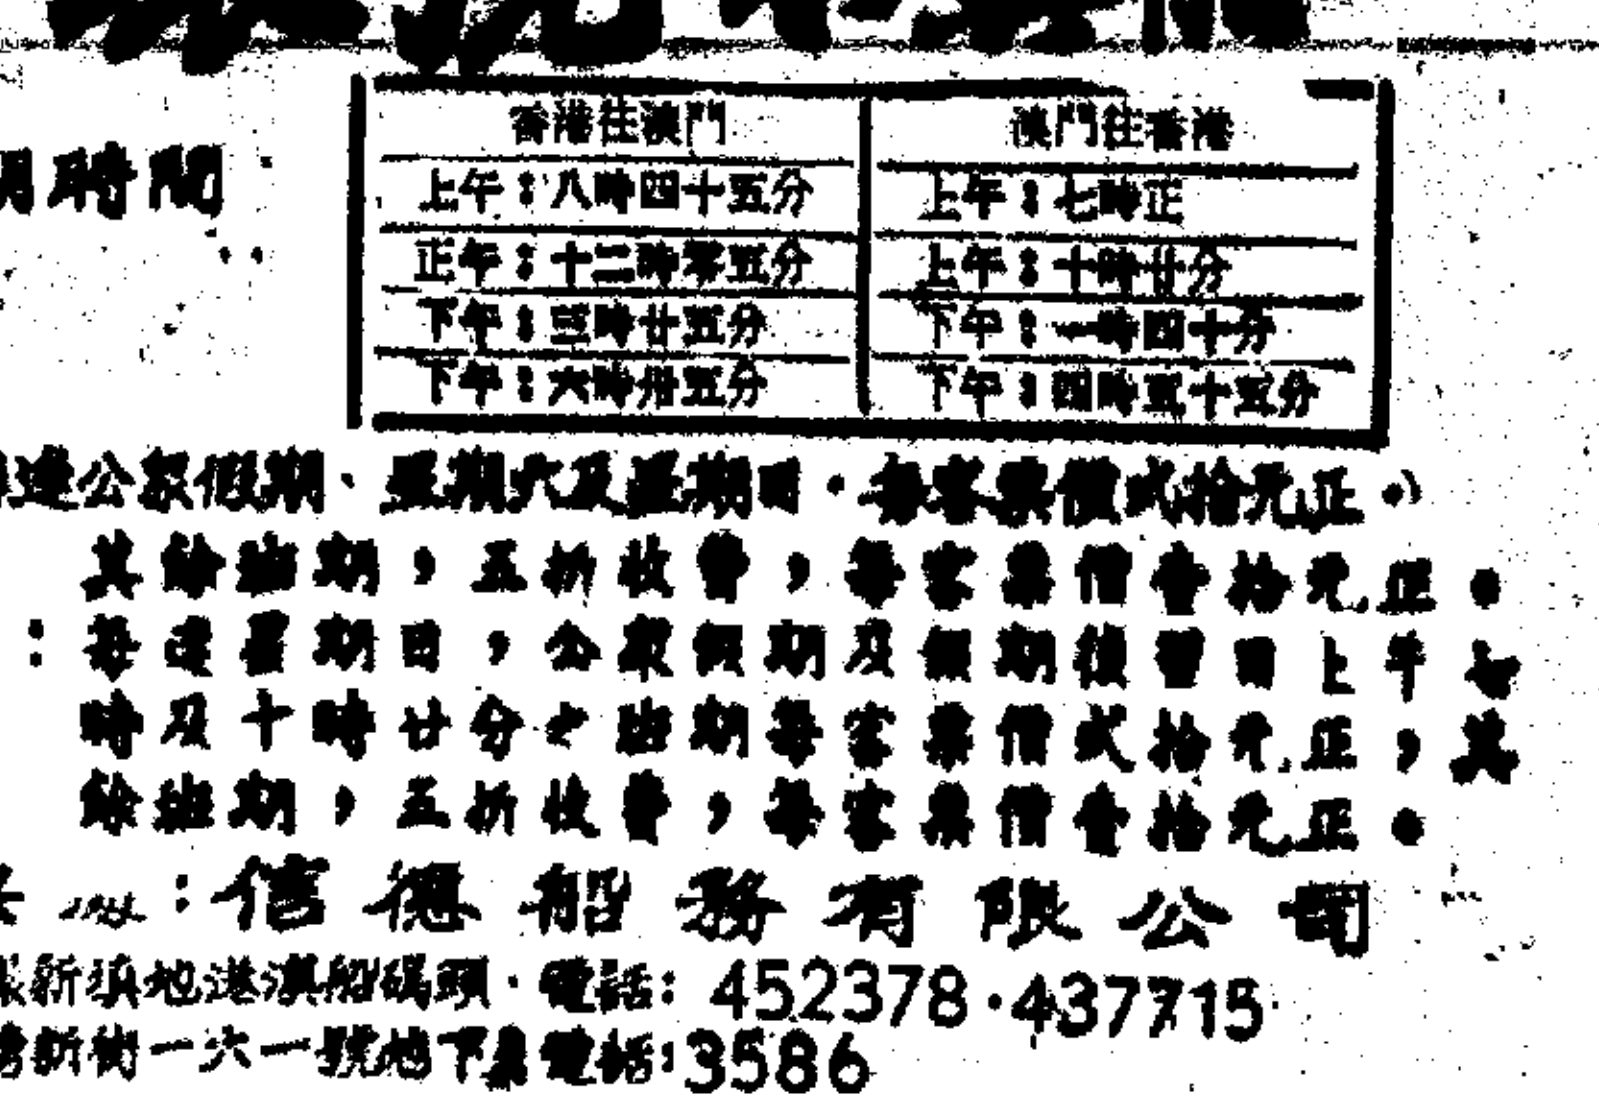 期時間
香港往澳門 澳門往香港
上午：八時四十五分 上午：七時正
正午：十二時零五分 上午：十時廿分
下午：三時廿五分 下午：一時四十分
下午：六時卅五分 下午：四時五十五分
逢公眾假期·星期六及星期日·每客票價式拾元正。）
其餘班期，五折收費，每客票價壹拾元正。
：每逢星期日，公眾假期及假期後翌日上午七
時及十時廿分之班期每客票價式拾元正，其
餘班期，五折收費，每客票價壹拾元正。
：信德船務有限公司
新填地港澳船碼頭·電話：452378·437715
新街一六一號地下 電話：3586